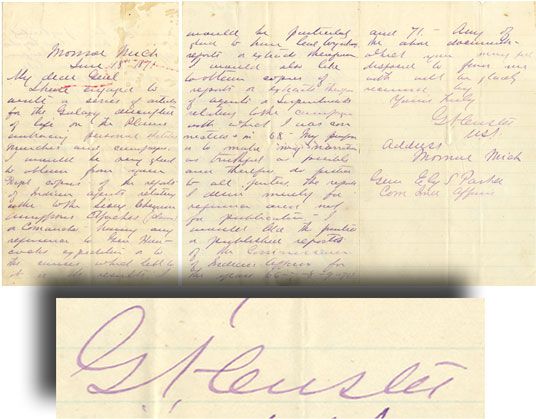 Monroe Mich
June 18th 1871
My dear Genl
I have engaged to
write a series of articles
for the Galaxy descriptive
of life on the Plains
embracing personal
marches and campaigns.
I would be very glad
to obtain from your
copies of the reports
of Indian agents relating
either to the Sioux Cheyenne
Apaches
or Comanches having any
reference to Genl Han-
cocks expedition or to
the causes which led to
it or the results
would be particularly
glad to have
reports or extracts therefrom
I would also like
to obtain copies of
reports or extracts
of agents & Superintendents
relating to the campaign
with which I was con
nected in 68. My purpose
is to make my narrative
as truthful as possible
and therefore do justice
to all parties. The reports
I desire merely for
reference and not
for publication. I
would like the
or published reports
of the Commissioner
of Indian Affairs for
the years
and 71. Any of
the above documents
which you may feel
disposed to favor me
with will be gladly
received by
Yours truly
G A Custer
USA
Address
Monroe Mich
Genl Ely S Parker
Com Indn Affairs
G A Custer